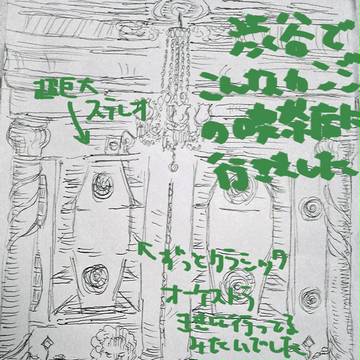 渋谷で
こんなカンジ
の喫茶店に
行きました
超巨大
ステレオ
ずっとクラシック
オーケストラ
行ってる
みたいでした